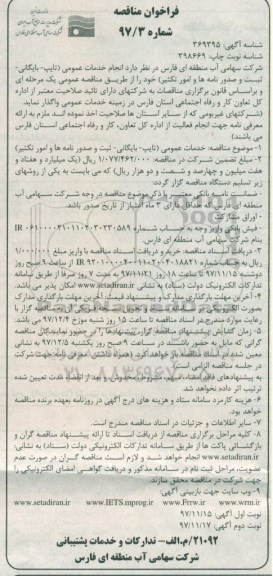 فراخوان مناقصه
شماره ۹۷/۳
شناسه آگهی: ۳۶۹۳۹۵
شناسه نوبت چاپ: ۳۹۸۶۶۹
شرکت سهامی آب منطقه ای فارس در نظر دارد انجام خدمات عمومی (تایپ- بایگانی-
ثبت و صدور نامه ها و امور تکثیر) خود را از طریق مناقصه عمومی یک مرحله ای
و براساس قانون برگزاری مناقصات به شرکتهای دارای تائید صلاحیت معتبر از اداره
کل تعاون کار و رفاه اجتماعی استان فارس در زمینه خدمات عمومی واگذار نماید.
(شرکتهای غیربومی که از سایر استان ها صلاحیت اخذ نموده اند ملزم به ارائه
معرفی نامه جهت انجام فعالیت از اداره کل تعاون، کار و رفاه اجتماعی استان فارس
می باشند)
۱- موضوع مناقصه: خدمات عمومی (تایپ- بایگانی- ثبت و صدور نامه ها و امور تکثیر)
۲- مبلغ تضمین شرکت در مناقصه: ۱/۰۷۷/۴۶۲/۰۰۰ ریال (یک میلیارد و هفتاد و
هفت میلیون و چهارصد و شصت و دو هزار ریال) که می بایست به یکی از روشهای
زیر تسلیم دستگاه مناقصه گزار گردد:
- ضمانت نامه بانکی معتبر با ذکر موضوع مناقصه در وجه شرکت سهامی آب
منطقه ای فارس که حداقل دارای ۳ ماه اعتبار از تاریخ صدور باشد.
- اوراق مشارکت
- فیش بانکی واریز وجه به حساب شماره
بنام شرکت سهامی آب منطقه ای فارس.
۳- دریافت اسناد مناقصه: خرید و دریافت اسناد مناقصه با واریز مبلغ ۱/۰۰۰/۰۰۰
ریال به حساب شماره IR از ساعت ۹ صبح روز
دوشنبه ۹۷/۱۱/۱۵ تا ساعت ۱۸ روز ۹۷/۱۱/۲۱ به مدت ۷ روز صرفا از طریق سامانه
تدارکات الکترونیک دولت (ستاد) به نشانی www.setadiran.ir امکان پذیر می باشد.
۴- آخرین مهلت بارگذاری مدارک و پیشنهاد قیمت: آخرین مهلت بارگذاری مدارک
رعایت موارد مندرج در اسناد مناقصه تا ساعت ۱۵ روز شنبه مورخ ۹۷/۱۲/۴ می باشد.
۵- زمان گشایش پیشنهادهای مناقصه گران: پیشنهادها در حضور نمایندگان مناقصه
گرانی که مایل به حضور باشند در ساعت ۹ صبح روز یکشنبه ۹۷/۱۲/۵ به نشانی
معین شده در اسناد مناقصه باز خواهد کرد. (همراه داشتن معرفی نامه جهت شرکت
در جلسه مناقصه الزامی است)
به پیشنهادهای فاقد امضاء، مبهم، مشروط، مخدوش و بعد از انقضاء مدت تعیین شده
ترتیب اثر داده نخواهد شد.
۶- هزینه کارمزد سامانه ستاد و هزینه های درج آگهی در روزنامه بعهده برنده مناقصه
خواهد بود.
۷- سایر اطلاعات و جزئیات در اسناد مناقصه مندرج است.
۸- کلیه مراحل برگزاری مناقصه از دریافت اسناد تا ارائه پیشنهاد مناقصه گران و
بازگشائی پاکت ها از طریق سامانه تدارکات الکترونیکی دولت (ستاد) به نشانی:
www.setadiran.ir انجام خواهد شد و لازم است مناقصه گران در صورت عدم
عضویت، مراحل ثبت نام در سامانه مذکور و دریافت گواهی امضای الکترونیکی را
جهت شرکت در مناقصه محقق سازند.
۹- وب سایت جهت بازبینی آگهی:
www.setadiran.ir www.IETS.mporg.ir www.Frrw.ir www.wrm.ir
نوبت اول آگهی: ۹۷/۱۱/۱۵
نوبت دوم آگهی: ۹۷/۱۱/۱۷
۲۱۰۹۲/م‌الف- تدارکات و خدمات پشتیبانی
شرکت سهامی آب منطقه ای فارس